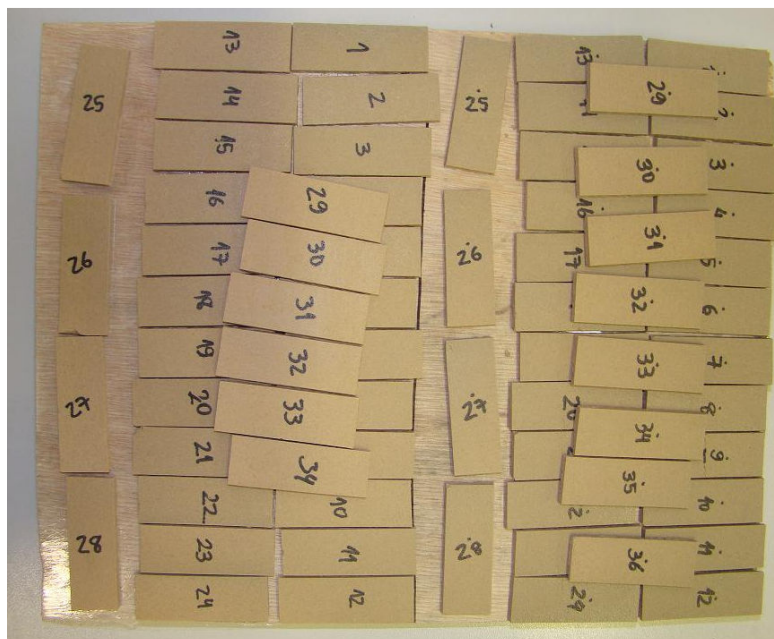 25
26
27
28
13
14
15
16
17
18
19
20
21
22
23
24
1
2
3
29
30
31
32
33
34
10
11
12
25
26
27
28
13
16
17
20
24
29
30
31
32
33
34
35
36
3
4
5
6
7
8
9
10
11
12